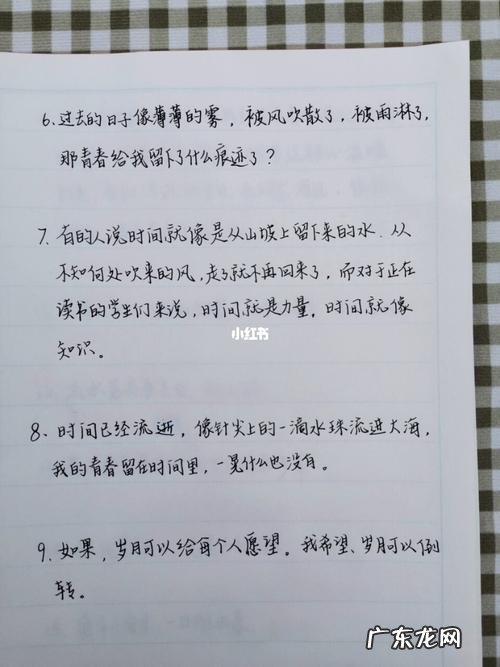 6.过去的日子像薄薄的雾，被风吹散了，被雨淋了，
那青春给我留下了什么痕迹了？
7、有的人说时间就像是从山坡上留下来的水.从
不知何处吹来的风,走了就不再回来了，而对于正在
读书的学生们来说，时间就是力量。时间就像
小红书
知识。
8、时间已经流逝，像针尖上的一滴水珠流进大海，
我的青春留在时间里，一晃什么也没有。
9、如果，岁月可以给每个人愿望。我希望、岁月可以倒
转。
广东龙网